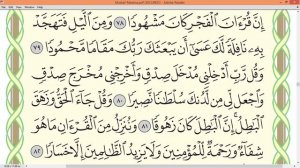 إِنَّ قُرْءَانَ ٱلْفَجْرِ كَانَ مَشْهُودًا ٧٨ وَمِنَ ٱلَّيْلِ فَتَهَجَّدْ
بِهِۦ نَافِلَةً لَّكَ عَسَىٰٓ أَن يَبْعَثَكَ رَبُّكَ مَقَامًا مَّحْمُودًا ٧٩
وَقُل رَّبِّ أَدْخِلْنِى مُدْخَلَ صِدْقٍ وَأَخْرِجْنِى مُخْرَجَ صِدْقٍ
وَٱجْعَل لِّى مِن لَّدُنكَ سُلْطَٰنًا نَّصِيرًا ٨٠ وَقُلْ جَآءَ ٱلْحَقُّ وَزَهَقَ
ٱلْبَٰطِلُ إِنَّ ٱلْبَٰطِلَ كَانَ زَهُوقًا ٨١ وَنُنَزِّلُ مِنَ ٱلْقُرْءَانِ مَا هُوَ
شِفَآءٌ وَرَحْمَةٌ لِّلْمُؤْمِنِينَ وَلَا يَزِيدُ ٱلظَّٰلِمِينَ إِلَّا خَسَارًا ٨٢